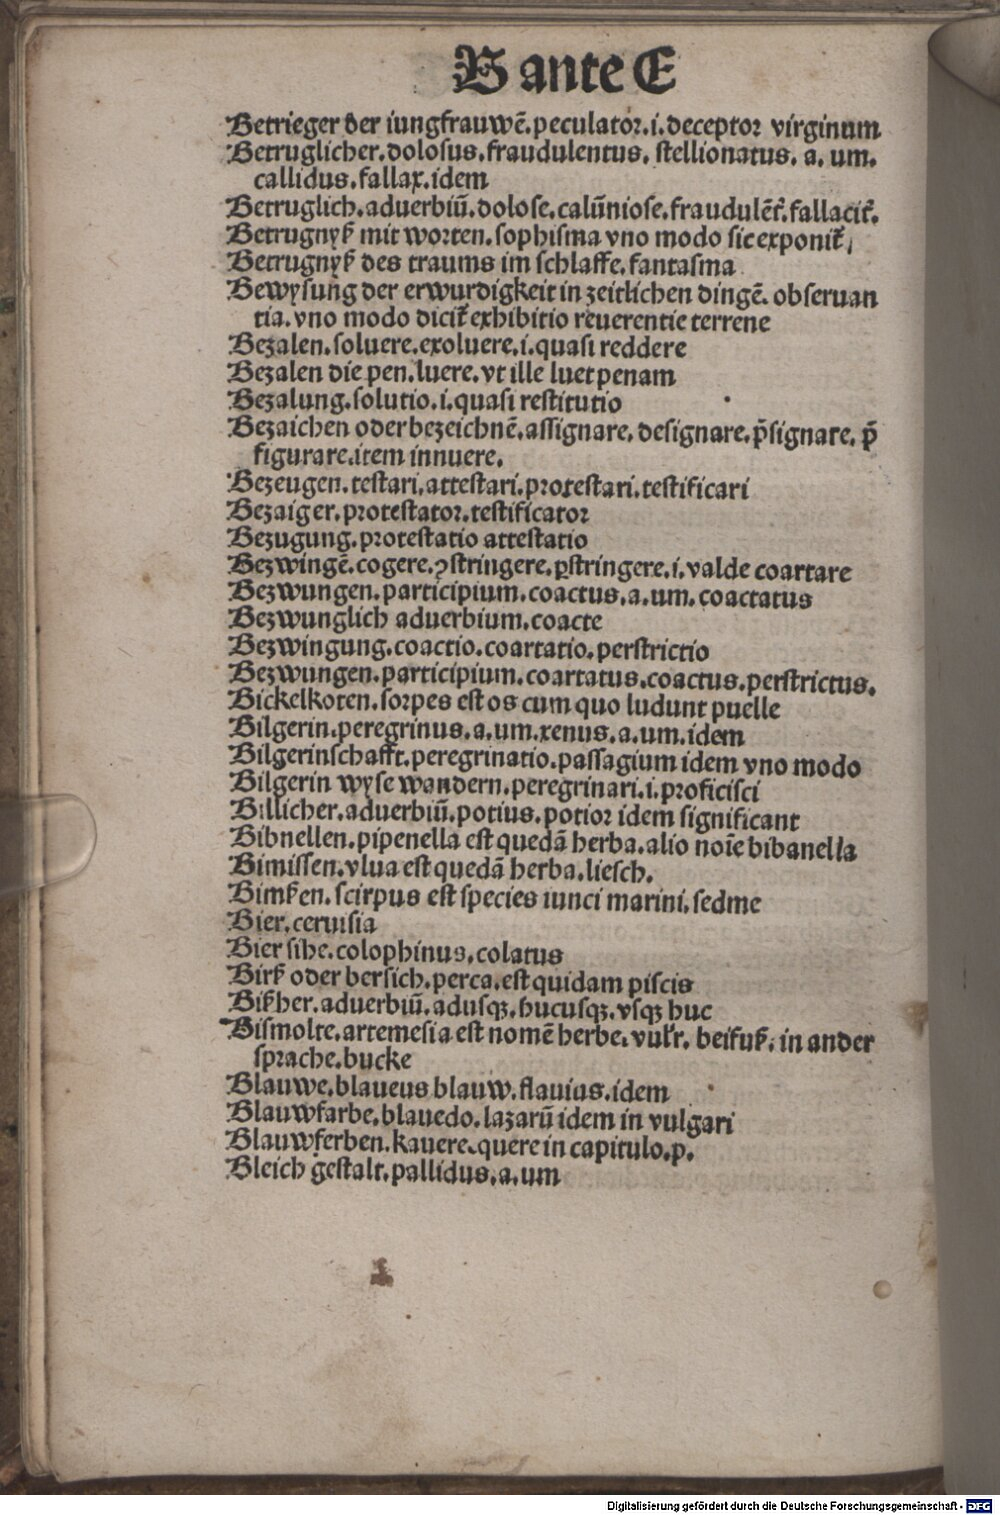 B ante E
Betrieger der iungfrauwē.peculator.i.deceptor virginum
Betruglicher.dolosus.fraudulentus. stellionatus. a. um.
callidus.fallax.idem
Betruglich.aduerbiū.dolose.calūniose.fraudulēt̄.fallacit̄.
Betrugnyß mit worten.sophisma vno modo sic exponit̄,
Betrugnyß des traums im schlaffe.fantasma
Bewysung der erwurdigkeit in zeitlichen dingē. obseruan
tia.vno modo dicit̄ exhibitio reuerentie terrene
Bezalen.soluere.exoluere.i.quasi reddere
Bezalen die pen.luere.vt ille luet penam
Bezalung.solutio.i.quasi restitutio
Bezaichen oder bezeichnē.assignare. designare.p̄signare. p̄
figurare.item innuere.
Bezeugen.testari.attestari.protestari.testificari
Bezaiger.protestator.testificator
Bezugung.protestatio attestatio
Bezwingē.cogere.ꝯstringere.ꝑstringere.i.valde coartare
Bezwungen.participium.coactus.a.um.coactatus
Bezwunglich aduerbium.coacte
Bezwingung.coactio.coartatio.perstrictio
Bezwungen.participium.coartatus.coactus.perstrictus.
Bickelkoten.sorpes est os cum quo ludunt puelle
Bilgerin.peregrinus.a.um.xenus.a.um.idem
Bilgerinschafft.peregrinatio.passagium idem vno modo
Bilgerin wyse wandern.peregrinari.i.proficisci
Billicher.aduerbiū.potius.potior idem significant
Bibnellen.pipenella est quedā herba.alio noīe bibanella
Bimissen.vlua est quedā herba.liesch.
Bimßen.scirpus est species iunci marini.sedme
Bier.ceruisia
Bier sihe.colophinus.colatus
Birß oder bersich.perca.est quidam piscis
Bißher.aduerbiū.adusqꝫ.hucusqꝫ.vsqꝫ huc
Bismolte.artemesia est nomē herbe.vulr̄. beifuß. in ander
sprache.bucke
Blauwe.blaueus blauw.flauius.idem
Blauwfarbe.blauedo.lazarū idem in vulgari
Blauwferben.kauere.quere in capitulo.p.
Bleich gestalt.pallidus.a.um
Digitalisierung gefördert durch die Deutsche Forschungsgemeinschaft - DFG